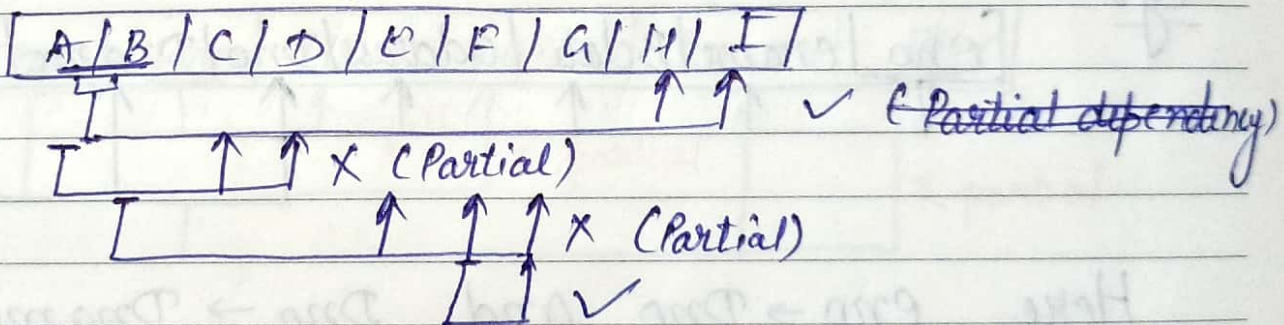 | A | B | C | D | E | F | G | H | I |
✓ (Partial dependency)
X (Partial)
X (Partial)
✓